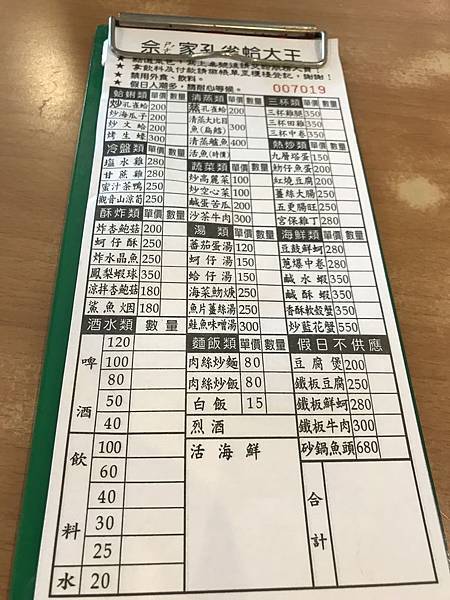 佘家孔雀蛤大王
禁用外食、飲料。
★ 假日人潮多，請耐心等候。
007019
蛤蜊類 單價 數量 清蒸類 單價 數量 三杯類 單價 數量
炒孔雀蛤 200 蒸孔雀蛤 200 三杯雞腿 350
炒海瓜子 200 清蒸大比目魚(扁鱈) 300 三杯田雞 350
炒大蛤 200 清蒸鱸魚 400 三杯中卷 350
烤生蠔 300 活魚(時價) 熱炒類 單價 數量
冷盤類 單價 數量 蔬菜類 單價 數量 九層塔蛋 150
塩水雞 280 炒高麗菜 100 魩仔魚蛋 200
甘蔗雞 280 炒空心菜 100 紅燒豆腐 200
蜜汁茶鴨 250 鹹蛋苦瓜 200 薑絲大腸 250
觀音山涼筍 250 沙茶牛肉 300 五更腸旺 250
酥炸類 單價 數量 湯類 單價 數量 宮保雞丁 280
炸杏鮑菇 200 蕃茄蛋湯 120 海鮮類 單價 數量
蚵仔酥 250 蚵仔湯 150 豆鼓鮮蚵 280
炸水晶魚 250 蛤仔湯 150 蔥爆中卷 280
鳳梨蝦球 350 海菜魩鱙 250 鹹水蝦 350
涼拌杏鮑菇 180 魚片薑絲湯 250 鹹酥蝦 350
鯊魚烟 180 鮭魚味噌湯 300 香酥軟殼蟹 350
酒水類 數量 麵飯類 單價 數量 炒藍花蟹 550
啤酒 120 肉絲炒麵 80 假日不供應
100 肉絲炒飯 80 豆腐煲 200
80 白飯 15 鐵板豆腐 250
50 烈酒 鐵板鮮蚵 280
40 活海鮮 鐵板牛肉 300
飲料 100 砂鍋魚頭 680
60 合計
40
30
25
水 20